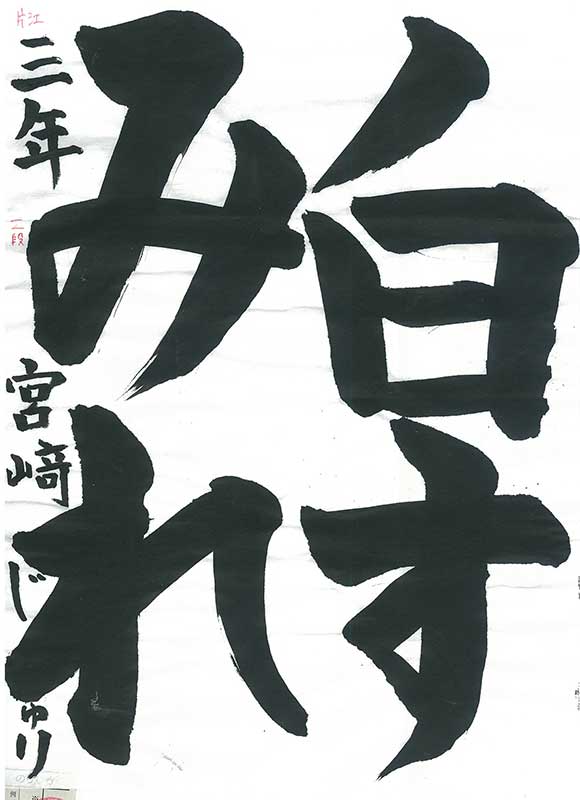 白す
みれ
片江
三年 宮﨑じゅり
二段